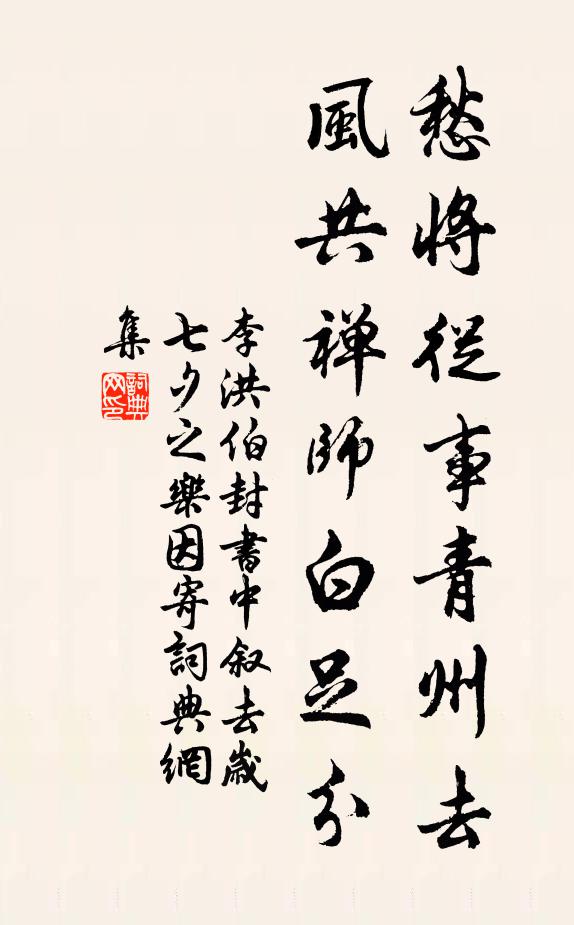 愁將從事青州去
風共禅師白足分
李洪伯封書中叙去歳
七夕之樂因寄詞典網
集
詞典
网印